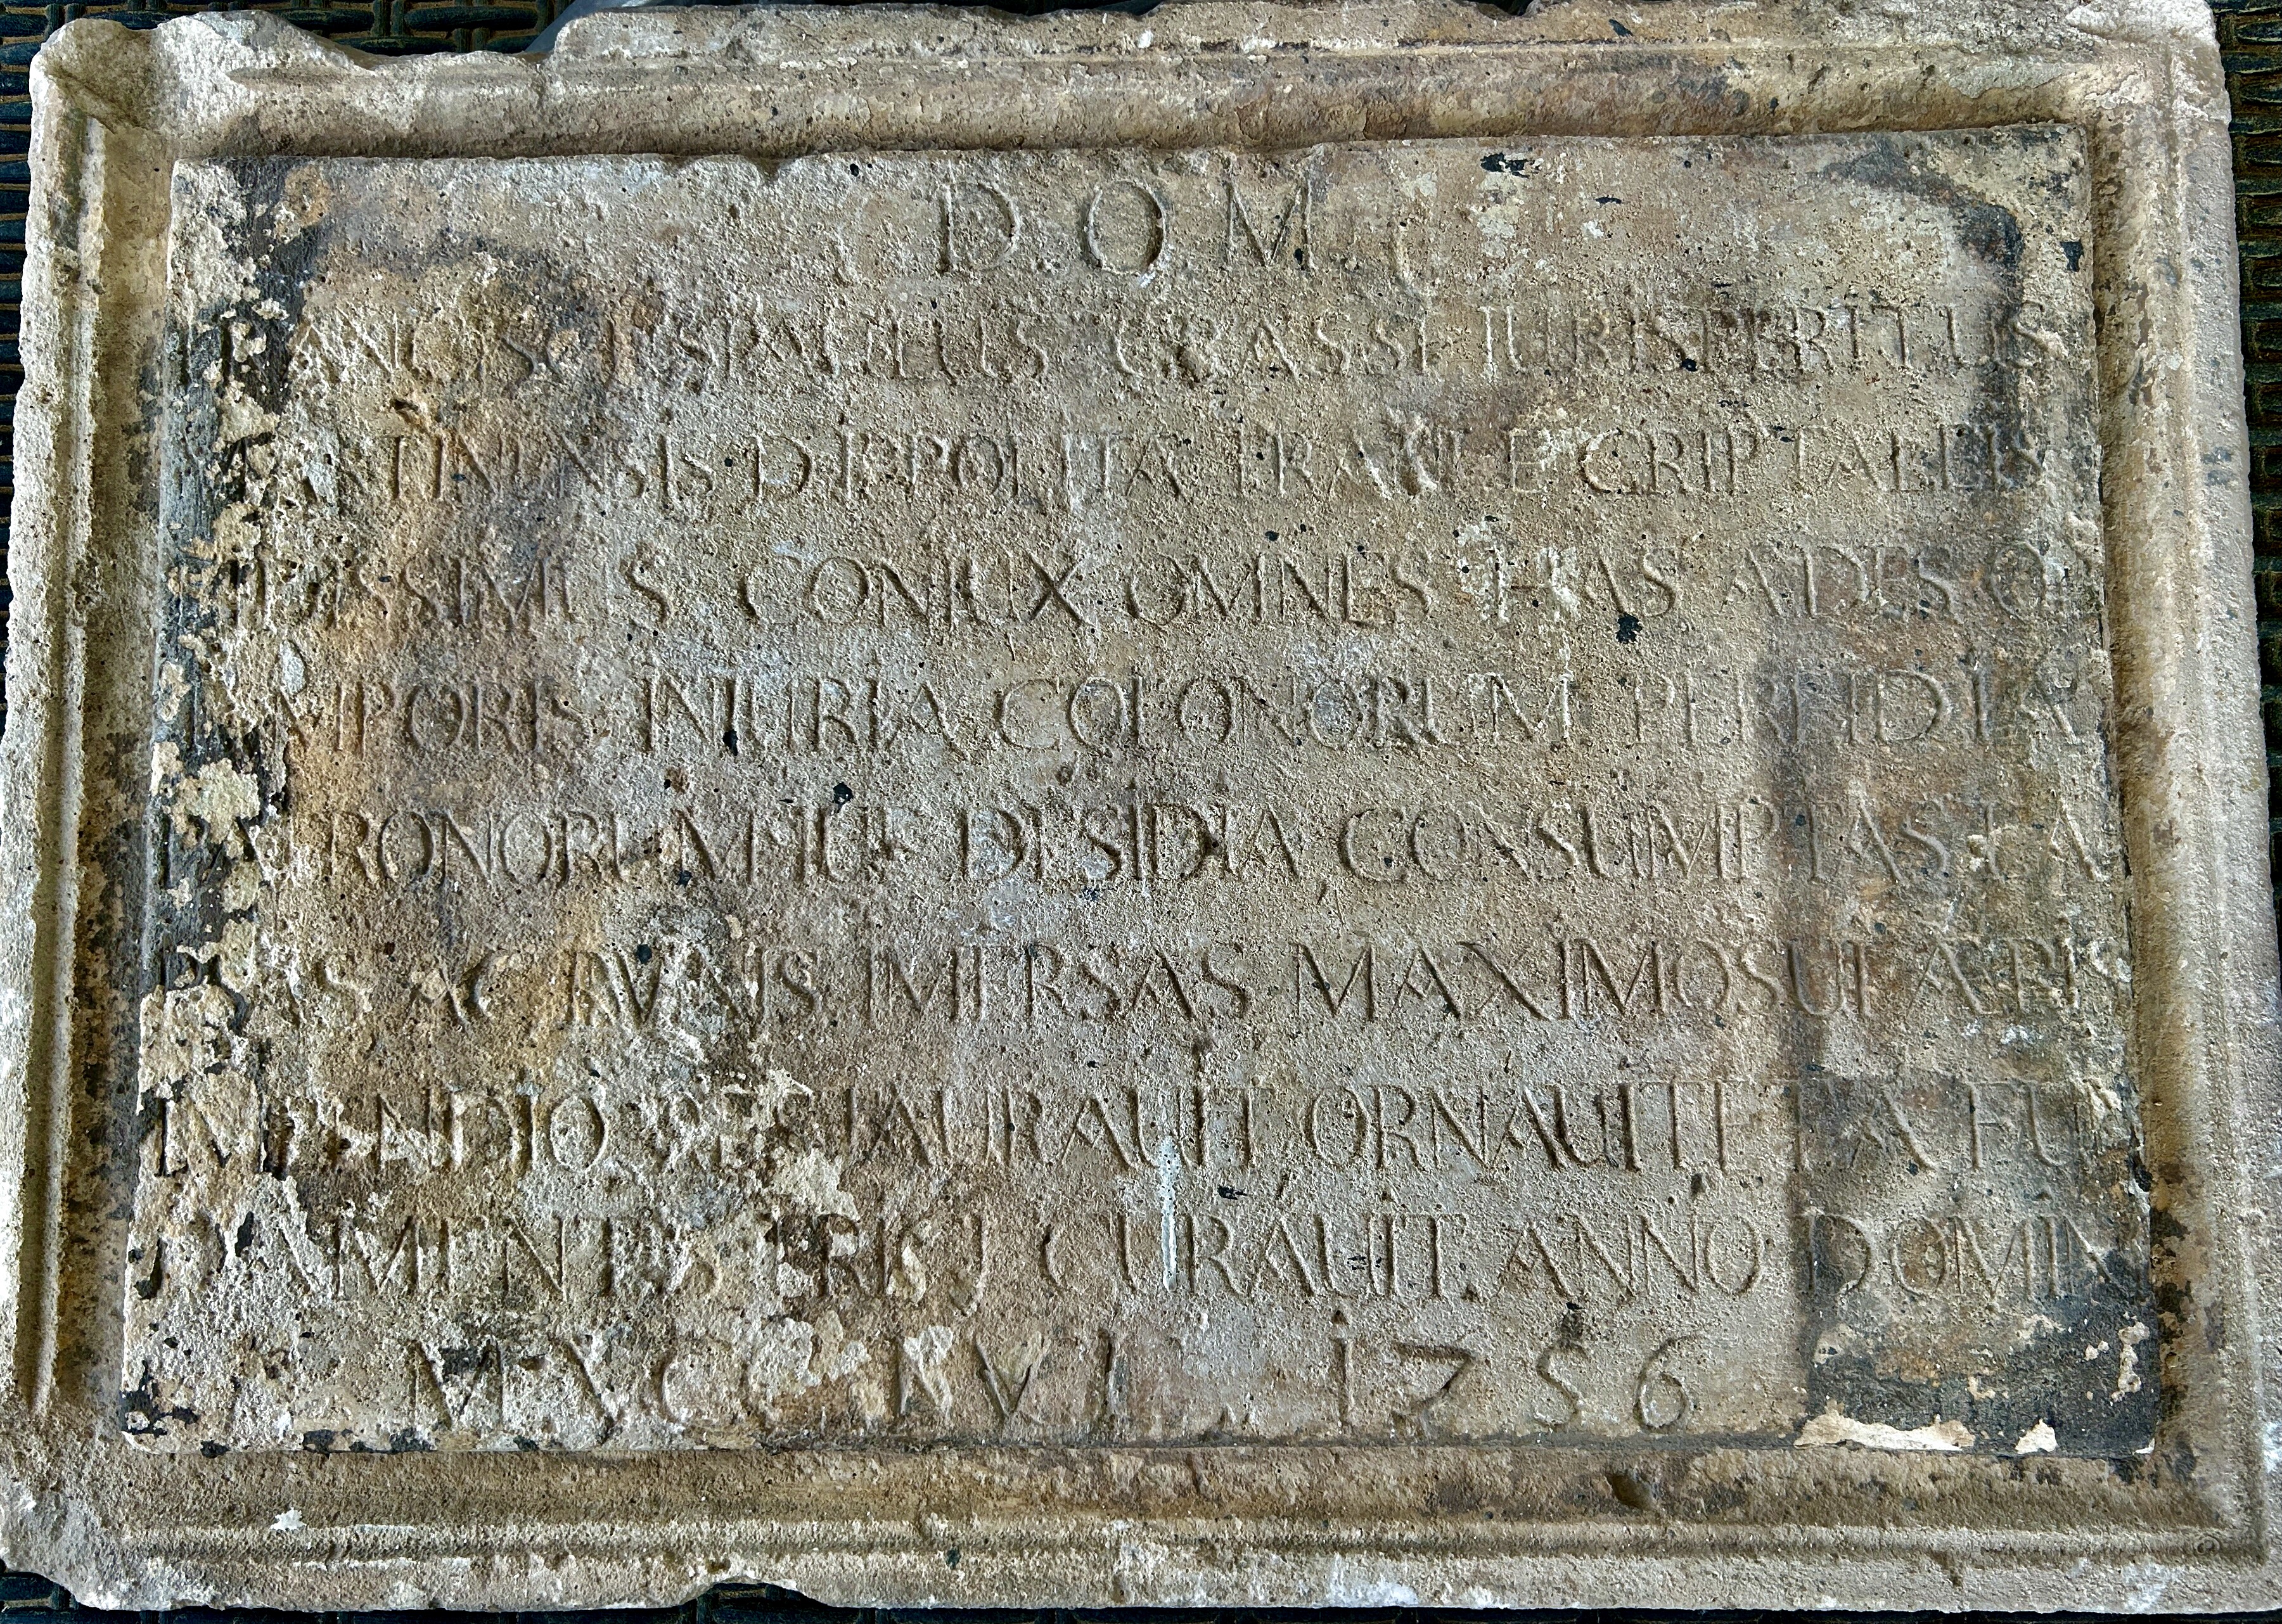 D.O.M.
FRANCISCUS PAULUS GRASSI IURISPERITUS
MARTINENSIS D. IPPOLITA FRANCE CRIPTALEIS
CONIUX OMNES HAS ADES OB
TEMPORIS INIURIA COLONORUM PERFIDIA
PATRONORUMHUC DESIDIA, CONSUMPTAS LA
AC RUINIS IMERSAS MAXIMO SUI ÆRIS
IMPENDIO RESTAURAUIT ORNAUITET A FU
DAMENTIS ERIGI CURAUIT. ANNO DOMINI
1756